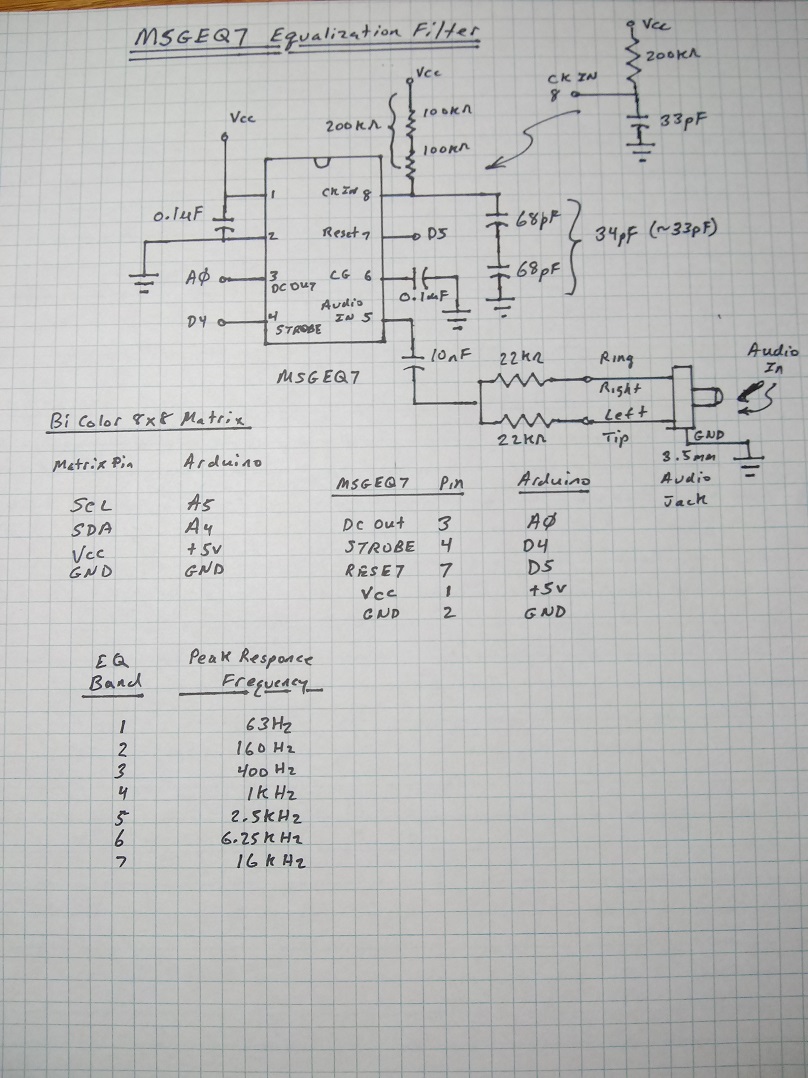 MSGEQ7 Equalization Filter
Vcc
0.1uF
Vcc
200KΩ
100KΩ
100KΩ
CKIN
8
Vcc
200KΩ
33pF
1
2
3
DCOUT
4
STROBE
CKIN 8
Reset 7
CG 6
Audio
IN 5
AØ
D4
D5
MSGEQ7
0.1uF
10nF
68pF
68pF
34pF (~33pF)
22KΩ
22KΩ
Ring
Right
Left
Tip
GND
3.5mm
Audio
Jack
Audio
In
Bi Color 8x8 Matrix
Matrix Pin Arduino
SCL A5
SDA A4
Vcc +5V
GND GND
MSGEQ7 Pin Arduino
DC Out 3 AØ
STROBE 4 D4
RESET 7 D5
Vcc 1 +5V
GND 2 GND
EQ Peak Responce
Band Frequency
1 63Hz
2 160Hz
3 400Hz
4 1KHz
5 2.5KHz
6 6.25KHz
7 16KHz